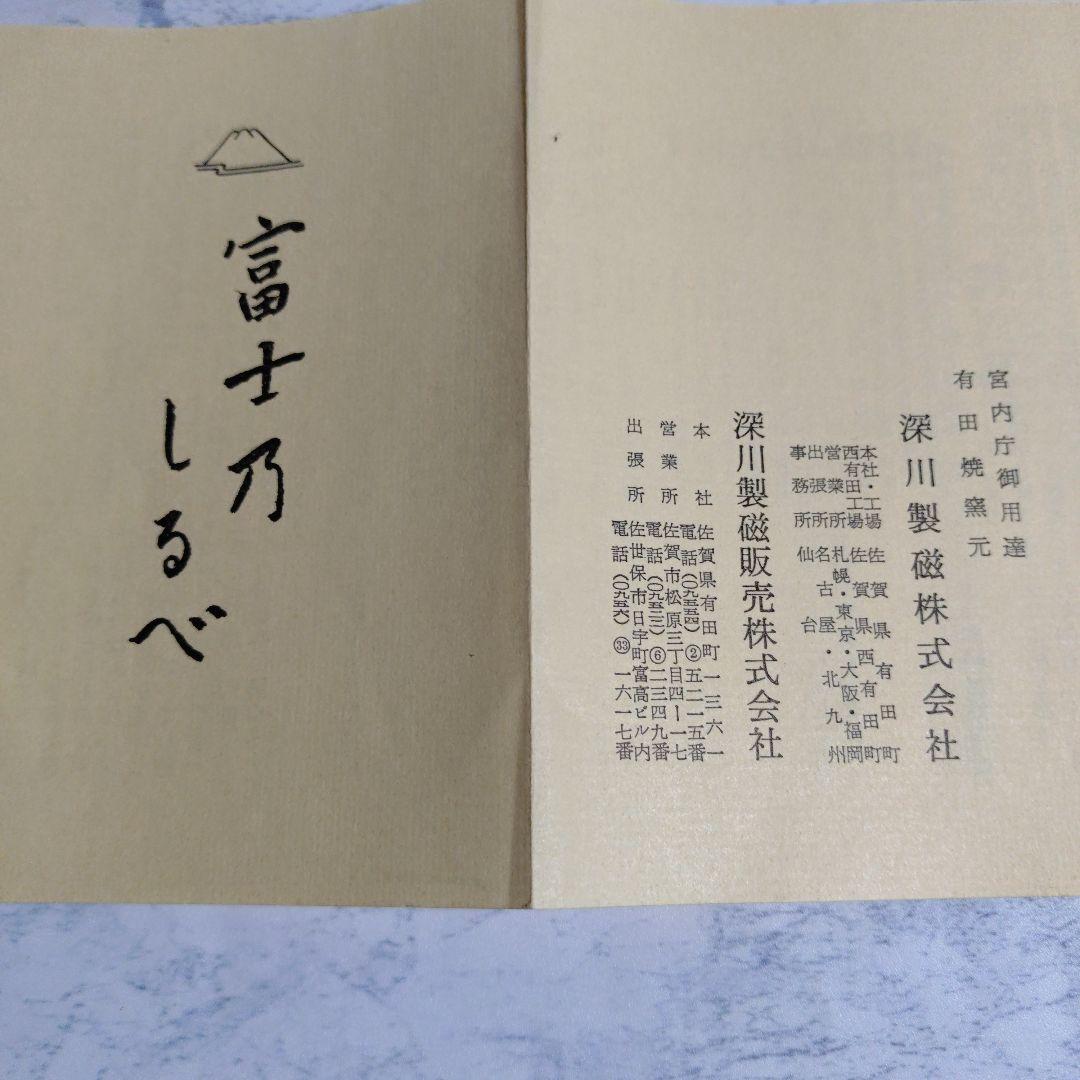 宮内庁御用達
有田焼窯元
深川製磁株式会社
本社・工場 佐賀県有田町
西有田工場 佐賀県西有田町
営業所 札幌・東京・大阪・福岡
出張所 名古屋・北九州
事務所 仙台
深川製磁販売株式会社
本社 佐賀県有田町一三六一
電話(〇九五五四)②五二一五番
営業所 佐賀市松原三丁目四ー一七
電話(〇九五二)⑥二三四九番
出張所 佐世保市日宇町富高ビル内
電話(〇九五六)㉝一六一七番
富士乃
しるべ